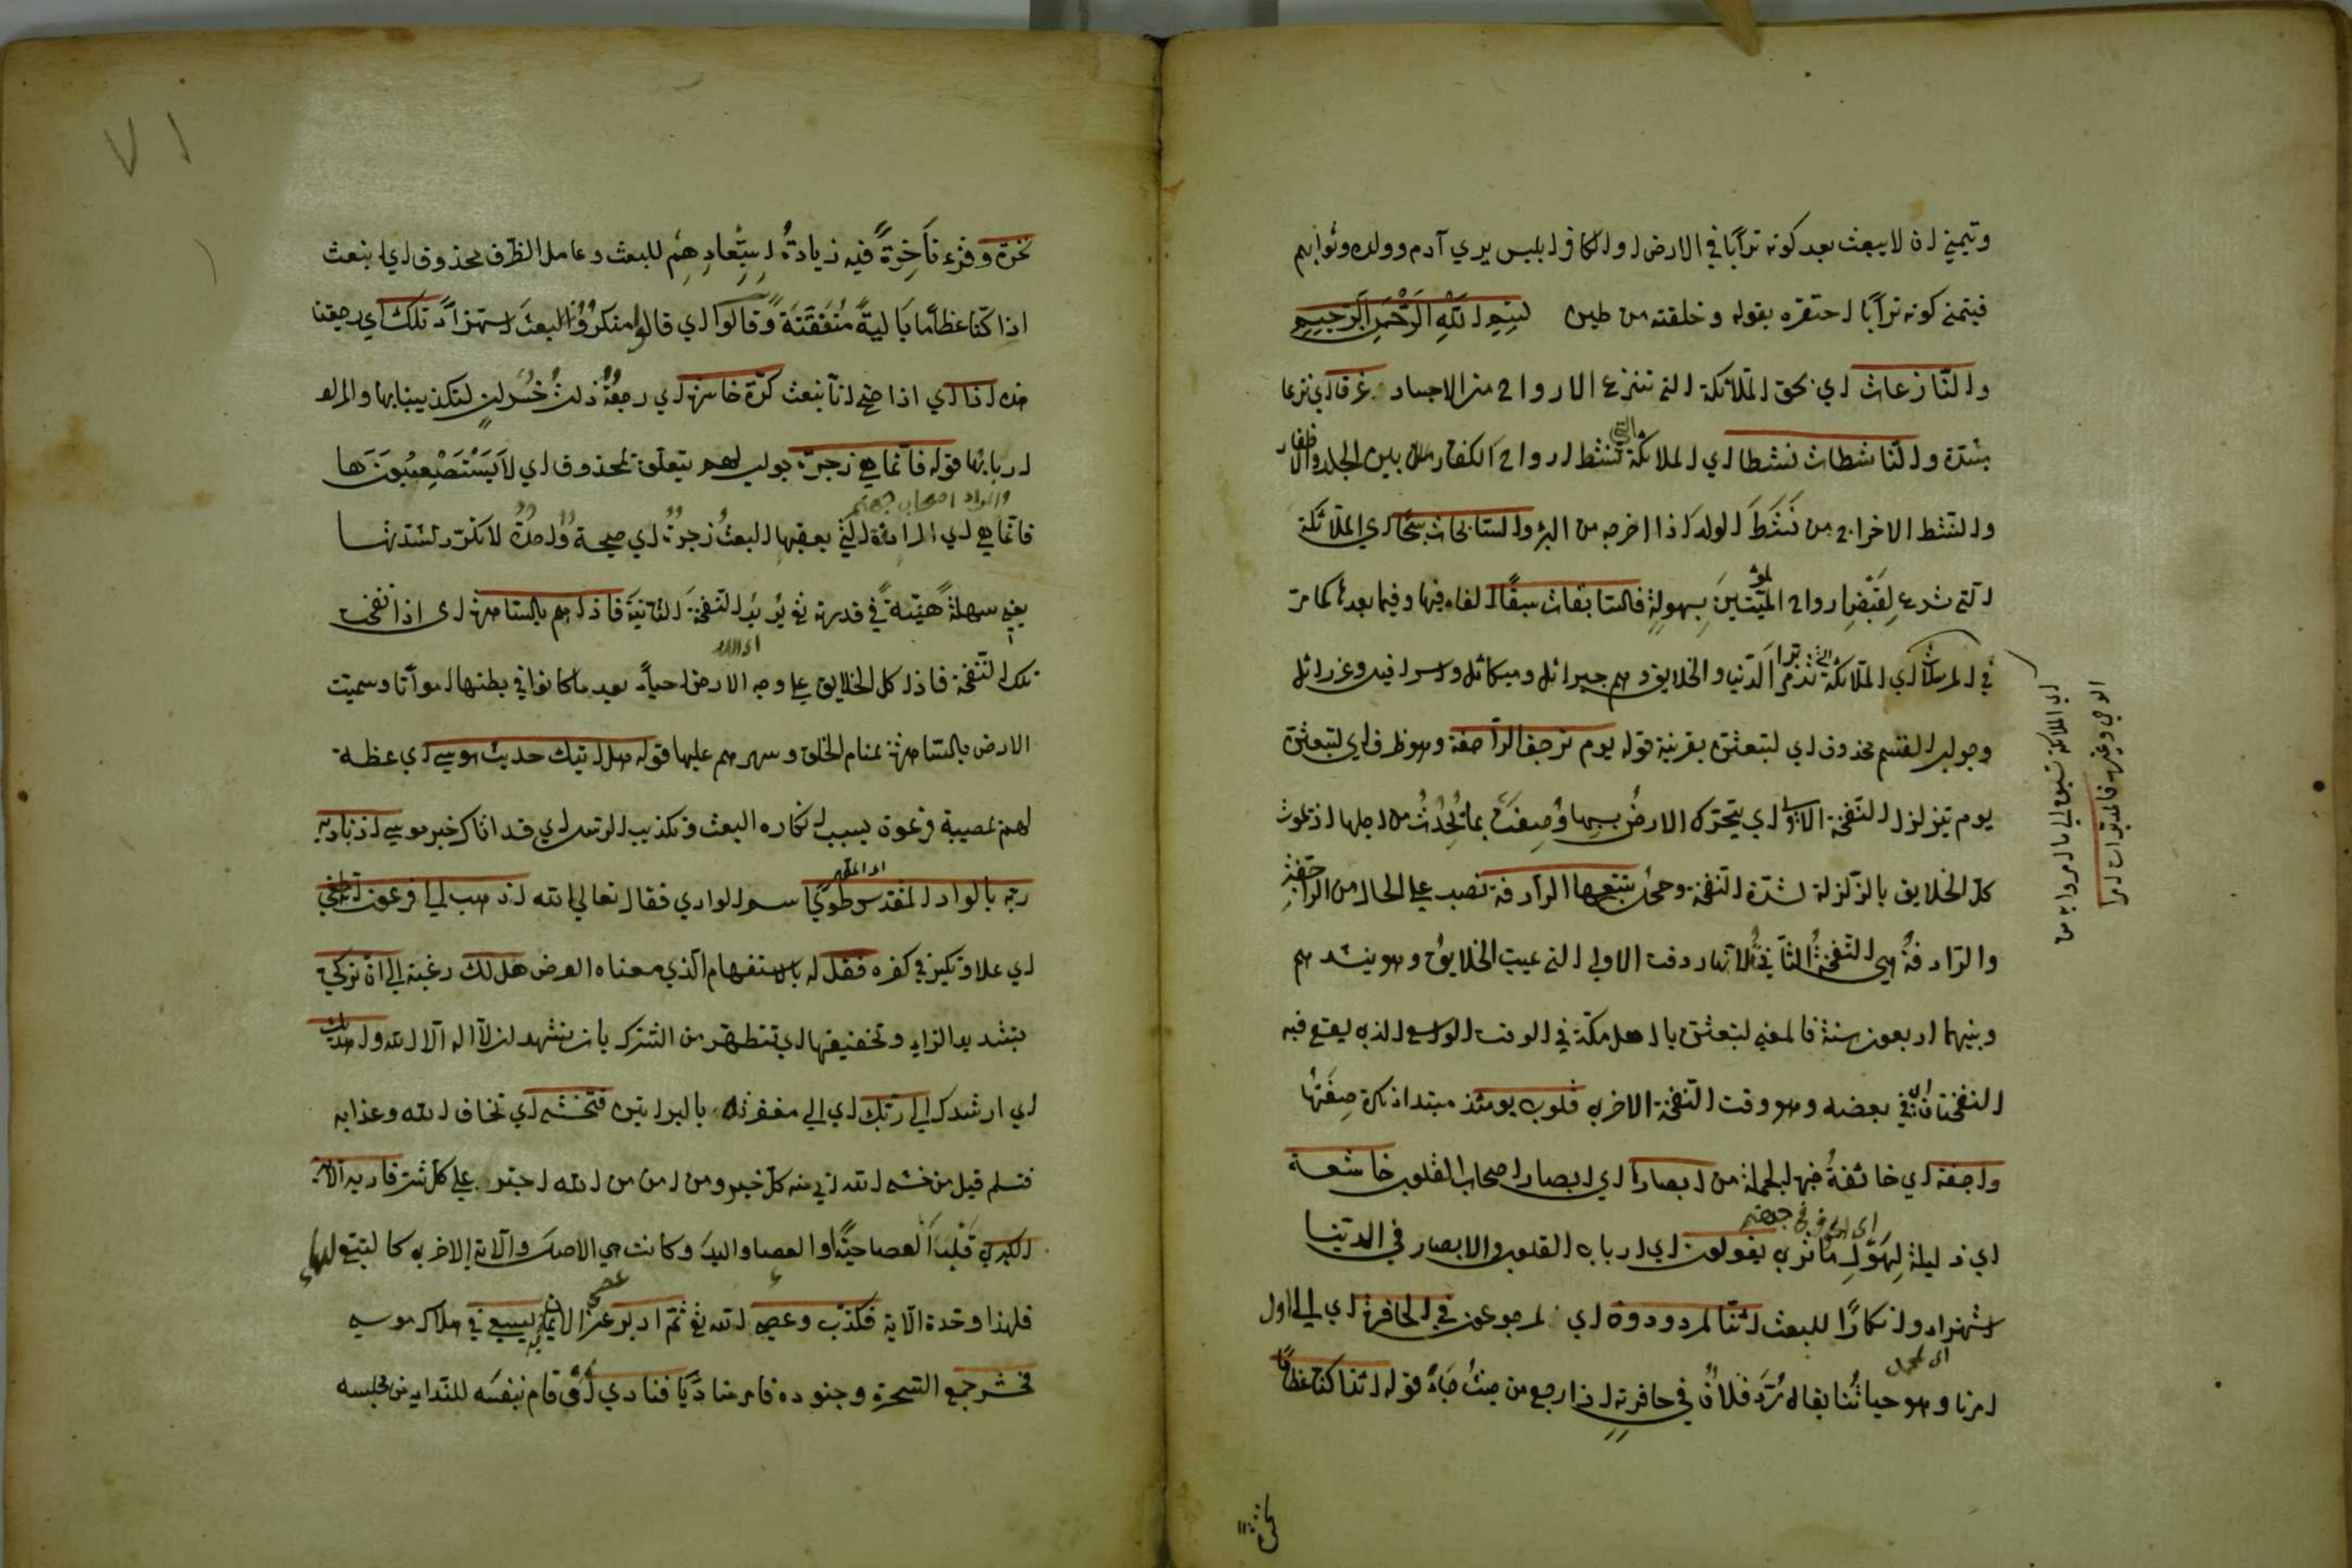 ويتمني ان لا يبعث بعد كونه ترابًا في الارض او الكافر ابليس يري آدم وولده وثوابهم
فيتمني كونه ترابًا احتقره بقوله وخلقته من طين بسم الله الرحمن الرحيم
والنازعات اي بحق الملائكة التي تنزع الارواح من الاجساد غرقا اي نزعا
بشدة والناشطات نشطا اي الملائكة التي تنشط ارواح الكفار من بين الجلد والاظفار
والنشط الاخراج من نشط الدلو اذا اخرجه من البئر والسابحات سبحا اي الملائكة
التي تسرع لقبض ارواح المؤمنين بسهولة فالسابقات سبقًا الفاء فيها وفيما بعدها كما مر
في المرسلات اي الملائكة التي تدبر امر الدنيا والخلايق وهم جبرائل وميكائل واسرافيل وعزرائل
وجواب القسم محذوف اي لتبعثن بقرينة قوله يوم ترجف الراجفة وهو ظرف اي لتبعثن
يوم تتزلزل النفخة الاولي اي يتحرك الارض بسببها وصفت بما يحدث من اجلها اذ تموت
كل الخلايق بالزلزلة لشدة النفخة وجملة تتبعها الرادفة نصب علي الحال من الراجفة
والرادفة هي النفخة الثانية لانها ردفت الاولي التي تميت الخلايق وهو ينشدهم
وبينهما اربعون سنة فالمعني لتبعثن يا اهل مكة في الوقت الواسع الذي يقع فيه
النفختان اي في بعضه وهو وقت النفخة الاخري قلوب يومئذ مبتدا نكرة صفتها
واجفة اي خائفة خبرها الجملة من ابصارها اي ابصار اصحاب القلوب خاشعة
اي ذليلة لهول ما تري يقولون اي ارباب القلوب والابصار في الدنيا
اي الكافر في جهنم
استهزاء وانكارًا للبعث ائنا لمردودون اي لمرجوعون في الحافرة اي الي اول
امرنا وهو حياتنا يقال رد فلان في حافرته اذا رجع من حيث جاء قوله ائذا كنا عظاما
نخرة
نخرة وقرئ ناخرة فيه زيادة استبعادهم للبعث وعامل الظرف محذوف اي انبعث
اذا كنا عظامًا بالية متفتتة وقالوا اي قالوا منكرون البعث استهزاء تلك اي رجعتنا
هذه اذا اي اذا صح انا نبعث كرة خاسرة اي رجعة ذات خسران لتكذيبنا بها والمراد
اربابها قوله فانما هي زجرة جواب لهم يتعلق بمحذوف اي لا يستصعبونها
والمراد اصحاب جهنم
فانما هي اي الرادفة التي يعقبها البعث زجرة اي صيحة واحدة لا تكرر لشدتها
يعني سهلة هينة في قدرته تع يريد النفخة الثانية فاذا هم بالساهرة اي اذا نفخت
تلك النفخة فاذا كل الخلايق علي وجه الارض احياء بعد ما كانوا في بطنها امواتا وسميت
الارض بالساهرة لمنام الخلق وسهرهم عليها قوله هل اتيك حديث موسي اي عظة
لهم لمصيبة فرعون بسبب انكاره البعث وتكذيب الرسل اي قد اتاك خبر موسي اذ ناديه
ربه بالواد المقدس طوي اسم الوادي فقال تعالي الله اذهب الي فرعون انه طغي
اي علا وتكبر في كفره فقل له بالاستفهام الذي معناه العرض هل لك رغبة الي ان تزكي
بتشديد الزاي وتخفيفها اي تتطهر من الشرك بان تشهد ان لا اله الا الله واهديك
اي ارشدك الي ربك اي الي مغفرته بالبراهين فتخشي اي تخاف الله وعذابه
فتسلم قيل من خشي الله اتي منه كل خير ومن امن من الله اجترء علي كل شر فاريه الاية
الكبري قلب العصا حية او العصا واليد وكانت هي الاصل والآية الاخري كالتبع لها
فلهذا وحدة الآية فكذب وعصي الله تع ثم ادبر عن الايمان يسعي في هلاك موسي
فحشر جمع السحرة وجنوده فامر مناديًا فنادي او قام نفسه للنداء في مجلسه